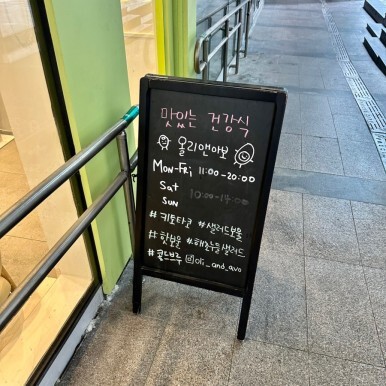 맛있는 건강식
올리앤아보
MON-FRI 11:00-20:00
Sat 10:00-14:00
SUN
#키토타코 #샐러드보울
#핫보울 #해초누들샐러드
#콜드브루 @oli_and_avo